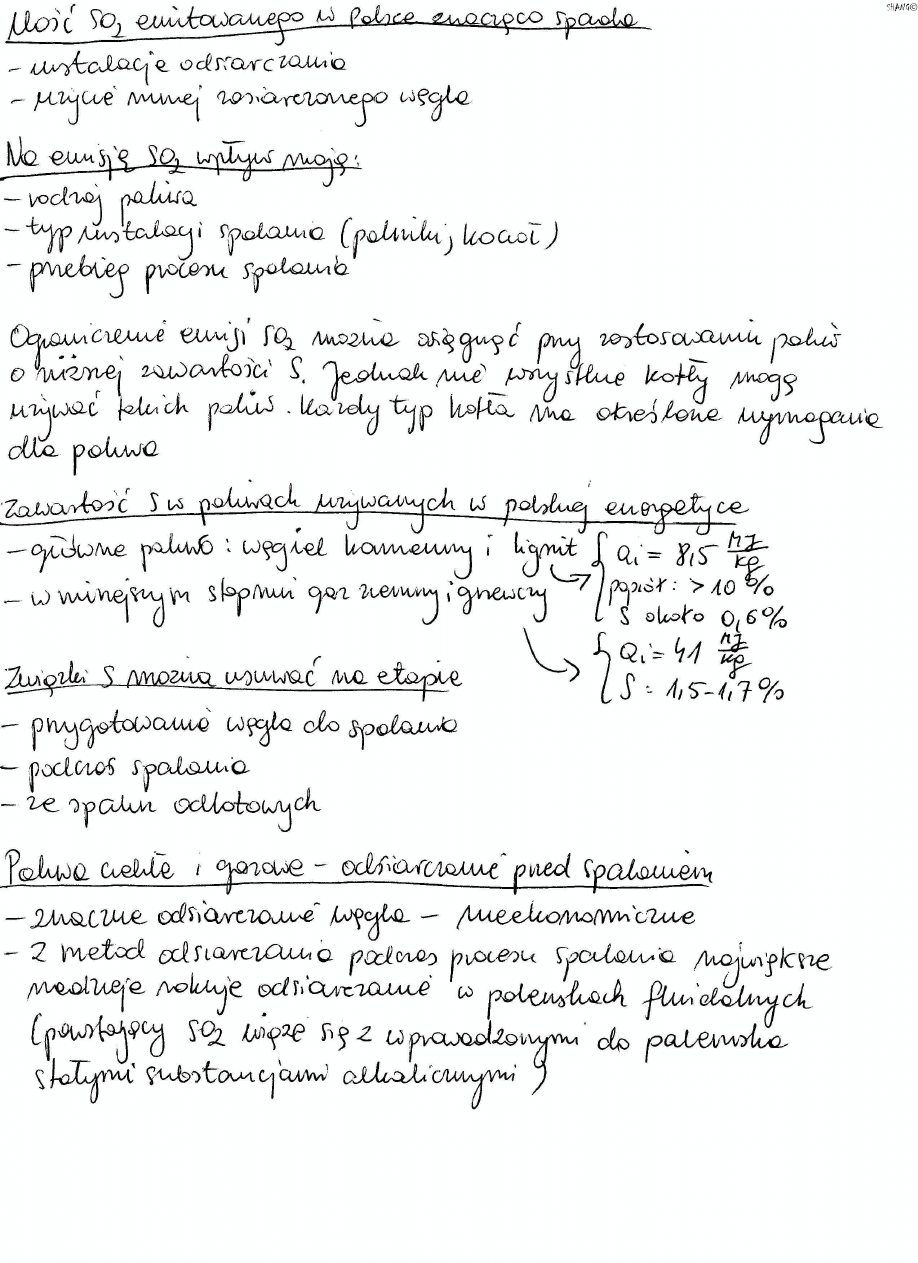 SHANG©
Ilość SO₂ emitowanego w Polsce znacząco spada
- instalacje odsiarczania
- użycie mniej zasiarczonego węgla
Na emisję SO₂ wpływ mają:
- rodzaj paliwa
- typ instalacji spalania (palniki, kocioł)
- przebieg procesu spalania
Ograniczenie emisji SO₂ można osiągnąć przy zastosowaniu paliw
o niższej zawartości S. Jednak nie wszystkie kotły mogą
używać takich paliw. Każdy typ kotła ma określone wymagania
dla paliwa
Zawartość S w paliwach używanych w polskiej energetyce
- główne paliwo: węgiel kamienny i lignit { Qi = 8,5 MJ/kg
popiół: > 10 %
S około 0,6%
- w mniejszym stopniu gaz ziemny i grzewczy
{ Qi = 41 MJ/kg
S = 1,5-1,7%
Związki S można usuwać na etapie
- przygotowania węgla do spalania
- podczas spalania
- ze spalin odlotowych
Paliwa ciekłe i gazowe - odsiarczanie przed spalaniem
- znaczne odsiarczanie węgla - nieekonomiczne
- z metod odsiarczania podczas procesu spalania największe
nadzieje rokuje odsiarczanie w paleniskach fluidalnych
(powstający SO₂ wiąże się z wprowadzonymi do paleniska
stałymi substancjami alkalicznymi)